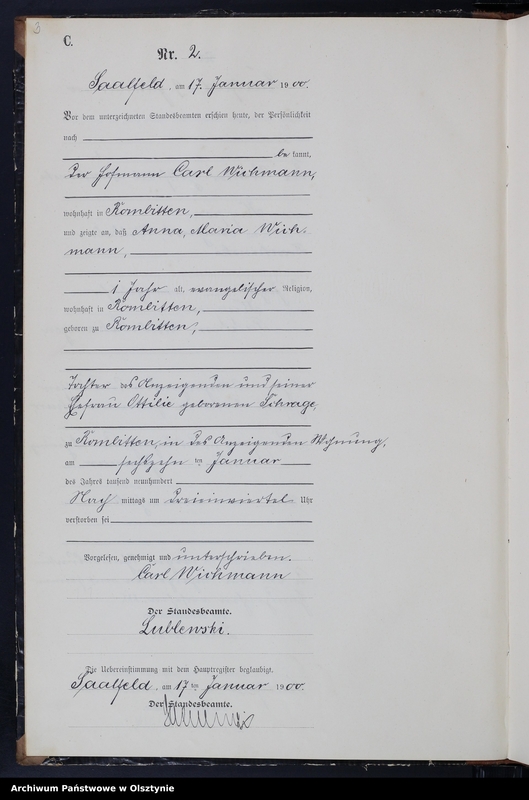 C.
Nr. 2.
Saalfeld, am 17. Januar 1900.
Vor dem unterzeichneten Standesbeamten erschien heute, der Persönlichkeit
nach
bekannt,
der Hofmann Carl Wichmann,
wohnhaft in Kombitten,
und zeigte an, daß Anna, Maria Wich-
mann,
1 Jahr alt, evangelischer Religion,
wohnhaft in Kombitten,
geboren zu Kombitten,
Tochter des Anzeigenden und seiner
Ehefrau Ottilie geborenen Schrage,
zu Kombitten, in des Anzeigenden Wohnung,
am sechszehn ten Januar
des Jahres tausend neunhundert
Nach mittags um dreieinviertel Uhr
verstorben sei
Vorgelesen, genehmigt und unterschrieben.
Carl Wichmann
Der Standesbeamte.
Lublewski.
Die Uebereinstimmung mit dem Hauptregister beglaubigt.
Saalfeld, am 17 ten Januar 1900.
Der Standesbeamte.
Archiwum Państwowe w Olsztynie